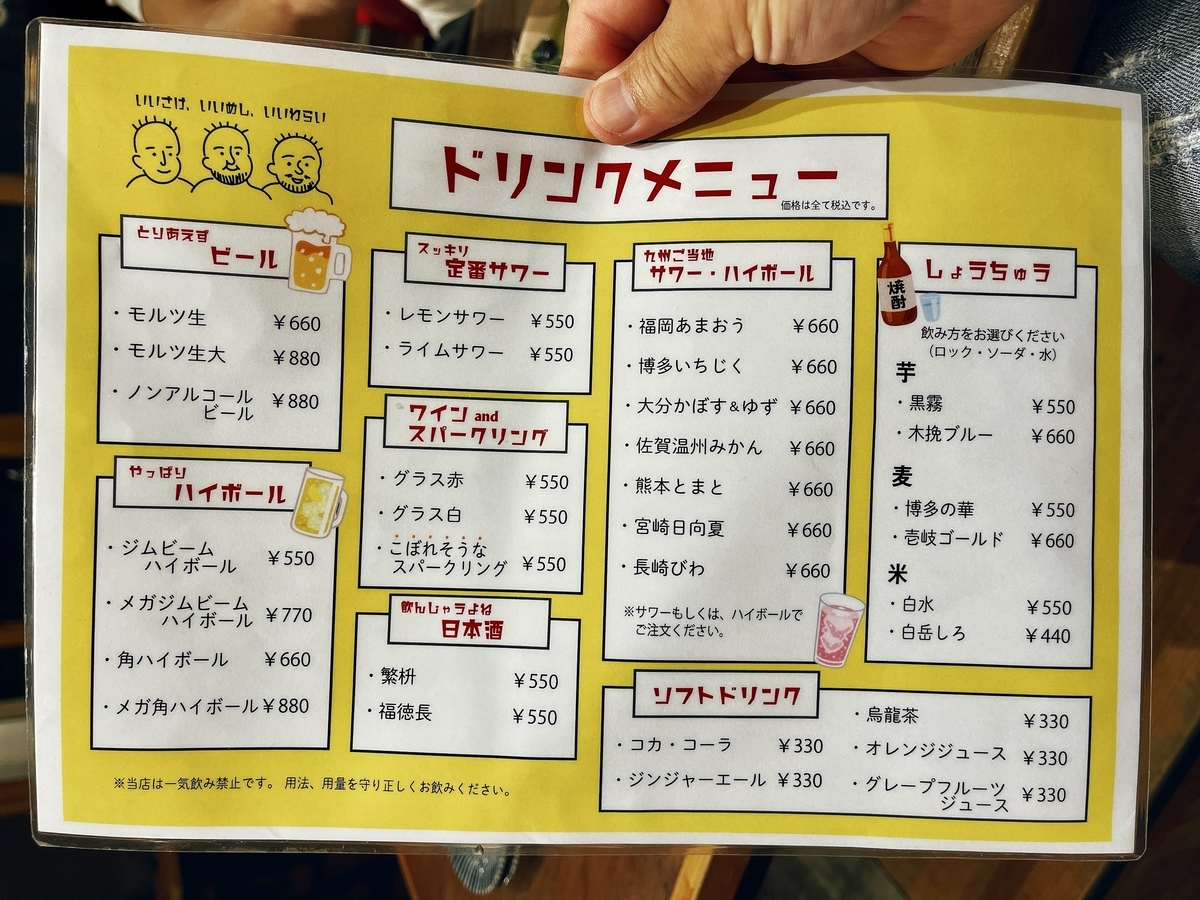 いいさけ、いいめし、いいわらい
ドリンクメニュー
価格は全て税込です。
とりあえず
ビール
・モルツ生 ¥660
・モルツ生大 ¥880
・ノンアルコール
ビール ¥880
やっぱり
ハイボール
・ジムビーム
ハイボール ¥550
・メガジムビーム
ハイボール ¥770
・角ハイボール ¥660
・メガ角ハイボール ¥880
スッキリ
定番サワー
・レモンサワー ¥550
・ライムサワー ¥550
ワイン and
スパークリング
・グラス赤 ¥550
・グラス白 ¥550
・こぼれそうな
スパークリング ¥550
飲んじゃうよね
日本酒
・繁枡 ¥550
・福徳長 ¥550
九州ご当地
サワー・ハイボール
・福岡あまおう ¥660
・博多いちじく ¥660
・大分かぼす&ゆず ¥660
・佐賀温州みかん ¥660
・熊本とまと ¥660
・宮崎日向夏 ¥660
・長崎びわ ¥660
※サワーもしくは、ハイボールで
ご注文ください。
焼酎
しょうちゅう
飲み方をお選びください
（ロック・ソーダ・水）
芋
・黒霧 ¥550
・木挽ブルー ¥660
麦
・博多の華 ¥550
・壱岐ゴールド ¥660
米
・白水 ¥550
・白岳しろ ¥440
ソフトドリンク
・コカ・コーラ ¥330
・ジンジャーエール ¥330
・烏龍茶 ¥330
・オレンジジュース ¥330
・グレープフルーツ
ジュース ¥330
※当店は一気飲み禁止です。 用法、用量を守り正しくお飲みください。